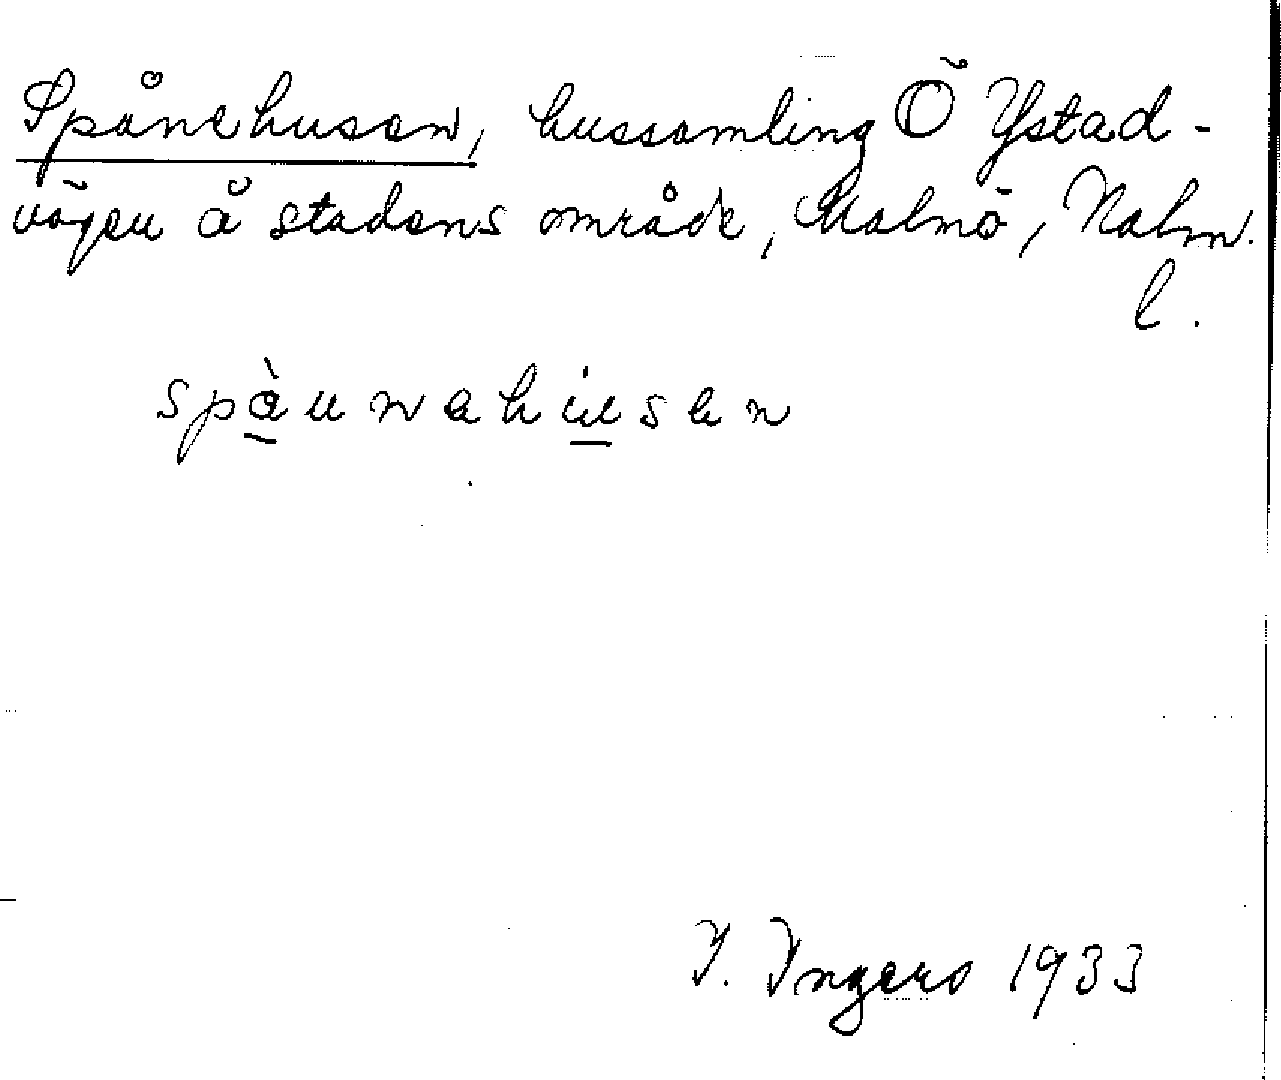 Spånehusen, hussamling Ö Ystad-
vägen å stadens område, Malmö, Malm.
l.
spàunwahúusan
I. Ingers 1933